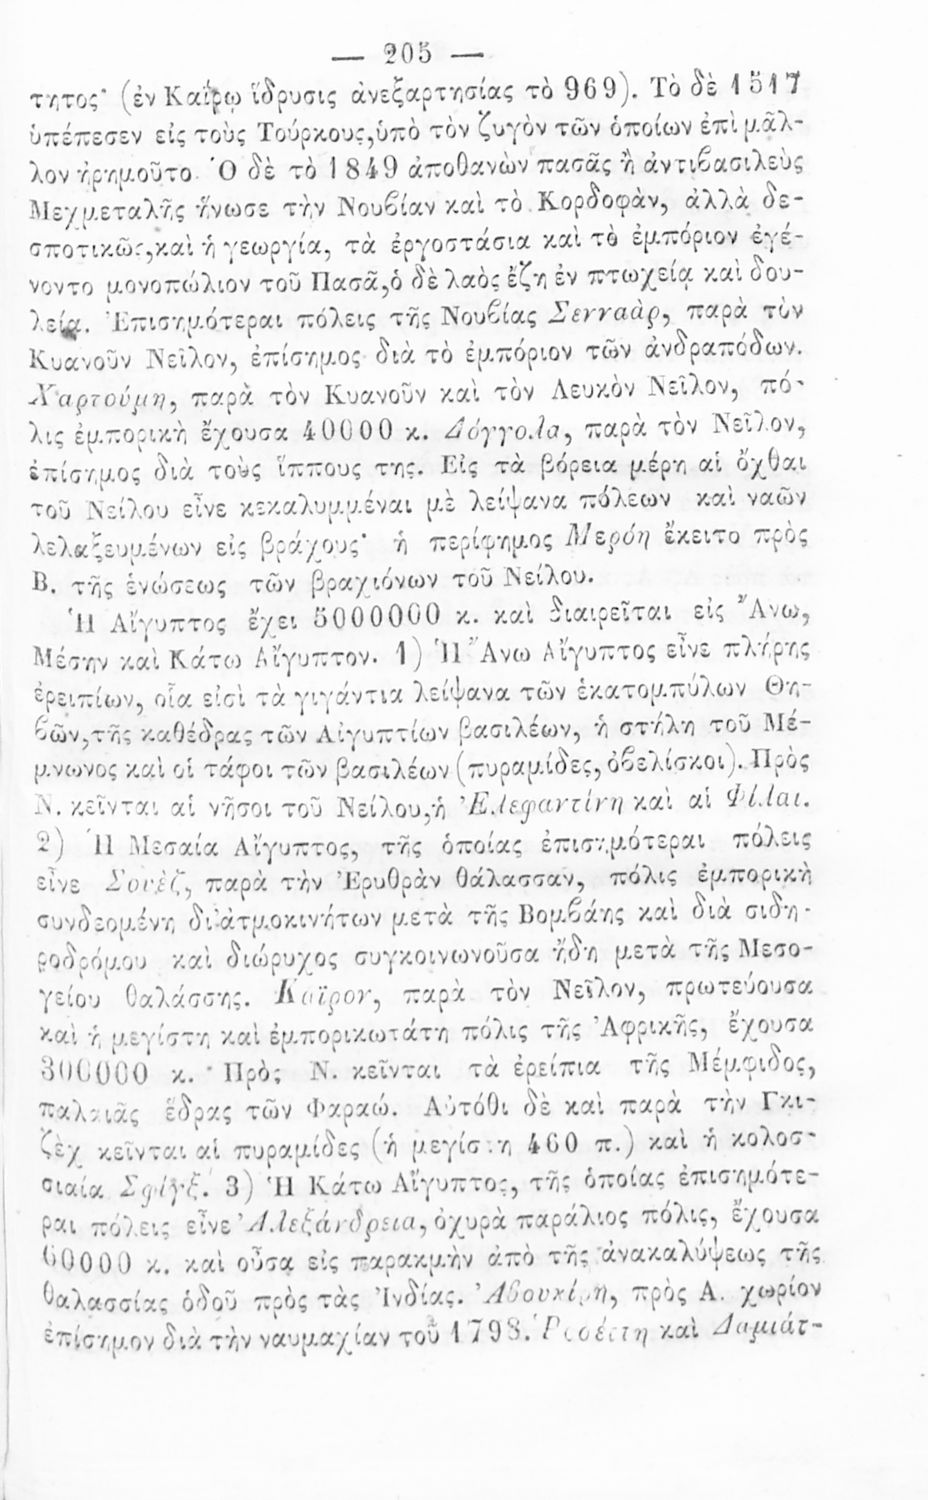 — 205 —
τητος· (ἐν Καΐρῳ ἵδρυσις ἀνεξαρτησίας τὸ 969). Τὸ δὲ 1517
ὑπέπεσεν εἰς τοὺς Τούρκους, ὑπὸ τὸν ζυγὸν τῶν ὁποίων ἐπὶ μᾶλ-
λον ἠρημοῦτο. Ὁ δὲ τὸ 1849 ἀποθανὼν πασᾶς ἢ ἀντιβασιλεὺς
Μεχμεταλῆς ἥνωσε τὴν Νουβίαν καὶ τὸ Κορδοφὰν, ἀλλὰ δε-
σποτικῶς, καὶ ἡ γεωργία, τὰ ἐργοστάσια καὶ τὸ ἐμπόριον ἐγέ-
νοντο μονοπώλιον τοῦ Πασᾶ, ὁ δὲ λαὸς ἔζη ἐν πτωχείᾳ καὶ δου-
λείᾳ. Ἐπισημότεραι πόλεις τῆς Νουβίας Σενναὰρ, παρὰ τὸν
Κυανοῦν Νεῖλον, ἐπίσημος διὰ τὸ ἐμπόριον τῶν ἀνδραπόδων.
Χαρτούμη, παρὰ τὸν Κυανοῦν καὶ τὸν Λευκὸν Νεῖλον, πό-
λις ἐμπορικὴ ἔχουσα 40000 κ. Δόγγολα, παρὰ τὸν Νεῖλον,
ἐπίσημος διὰ τοὺς ἵππους της. Εἰς τὰ βόρεια μέρη αἱ ὄχθαι
τοῦ Νείλου εἶνε κεκαλυμμέναι μὲ λείψανα πόλεων καὶ ναῶν
λελαξευμένων εἰς βράχους· ἡ περίφημος Μερόη ἔκειτο πρὸς
Β. τῆς ἑνώσεως τῶν βραχιόνων τοῦ Νείλου.
Ἡ Αἴγυπτος ἔχει 5000000 κ. καὶ διαιρεῖται εἰς Ἄνω,
Μέσην καὶ Κάτω Αἴγυπτον. 1) Ἡ Ἄνω Αἴγυπτος εἶνε πλήρης
ἐρειπίων, οἷα εἰσὶ τὰ γιγάντια λείψανα τῶν ἑκατομπύλων Θη-
βῶν, τῆς καθέδρας τῶν Αἰγυπτίων βασιλέων, ἡ στήλη τοῦ Μέ-
μνωνος καὶ οἱ τάφοι τῶν βασιλέων (πυραμίδες, ὀβελίσκοι). Πρὸς
Ν. κεῖνται αἱ νῆσοι τοῦ Νείλου, ἡ Ἐλεφαντίνη καὶ αἱ Φίλαι.
2) Ἡ Μεσαία Αἴγυπτος, τῆς ὁποίας ἐπισημότεραι πόλεις
εἶνε Σουὲζ, παρὰ τὴν Ἐρυθρὰν θάλασσαν, πόλις ἐμπορικὴ
συνδεομένη δι' ἀτμοκινήτων μετὰ τῆς Βομβάης καὶ διὰ σιδη-
ροδρόμου καὶ διώρυχος συγκοινωνοῦσα ἤδη μετὰ τῆς Μεσο-
γείου θαλάσσης. Κάϊρον, παρὰ τὸν Νεῖλον, πρωτεύουσα
καὶ ἡ μεγίστη καὶ ἐμπορικωτάτη πόλις τῆς Ἀφρικῆς, ἔχουσα
300000 κ. Πρὸς Ν. κεῖνται τὰ ἐρείπια τῆς Μέμφιδος,
παλαιᾶς ἕδρας τῶν Φαραώ. Αὐτόθι δὲ καὶ παρὰ τὴν Γκι-
ζὲχ κεῖνται αἱ πυραμίδες (ἡ μεγίστη 460 π.) καὶ ἡ κολοσ-
σιαία Σφίγξ. 3) Ἡ Κάτω Αἴγυπτος, τῆς ὁποίας ἐπισημότε-
ραι πόλεις εἶνε Ἀλεξάνδρεια, ὀχυρὰ παράλιος πόλις, ἔχουσα
60000 κ. καὶ οὖσα εἰς παρακμὴν ἀπὸ τῆς ἀνακαλύψεως τῆς
θαλασσίας ὁδοῦ πρὸς τὰς Ἰνδίας. Ἀβουκίρη, πρὸς Α. χωρίον
ἐπίσημον διὰ τὴν ναυμαχίαν τοῦ 1798. Ῥοσέττη καὶ Δαμιάτ-